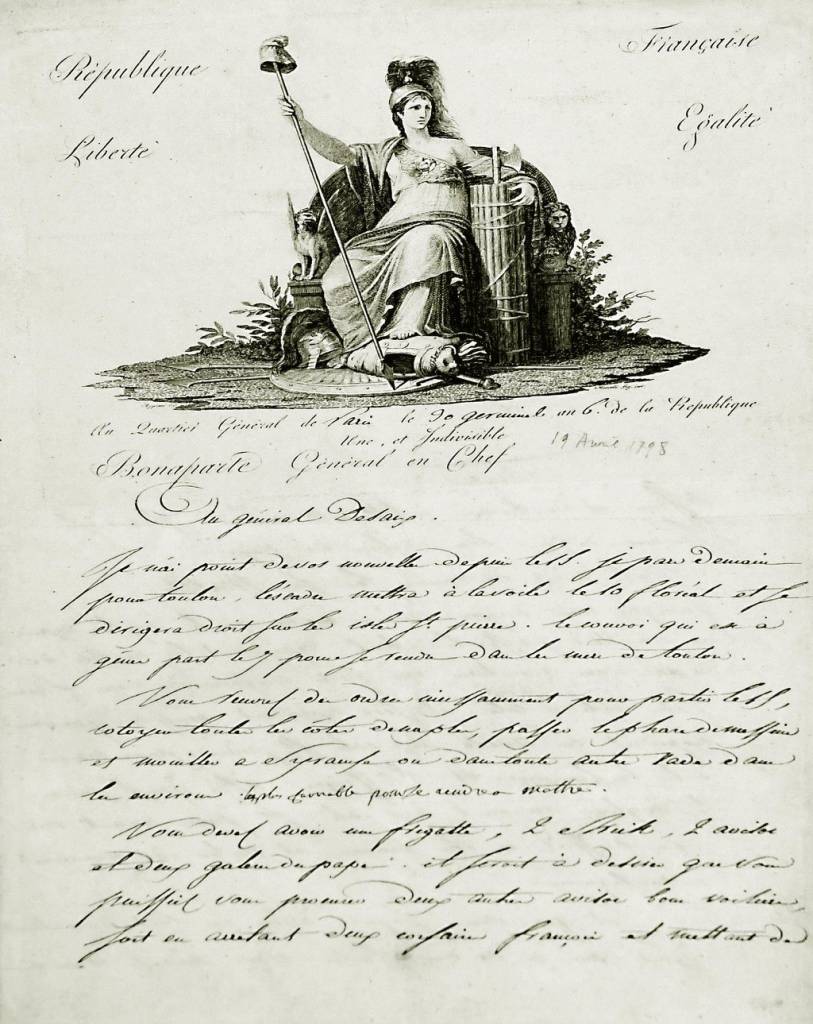 République Française
Liberté Egalité
Au Quartier Général de Paris le 30 germinal an 6e. de la République
Une, et Indivisible.
19 Avril 1798
Bonaparte Général en Chef
Au général Desaix.
Je n'ai point de vos nouvelles depuis le je pars demain
pour toulon. l'escadre mettra à la voile le 10 floréal et se
dirigera droit sur les isles St. pierre. le convoi qui est à
gênes part le 7 pour se rendre dans les mers de toulon.
Vous recevrez des ordres incessamment pour partir le
cotoyer toutes les côtes de naples, passer le phare de messine
et mouiller a Syracuse ou dans toute autre rade dans
les environs la plus favorable pour se rendre a malthe.
Vous devez avoir une frigatte, 2 , 2 avisos
et deux galeres du pape. il seroit à desirer que vous
puissiez vous procurer deux autres avisos bons voiliers,
soit en arretant deux corsaires françois et mettant des